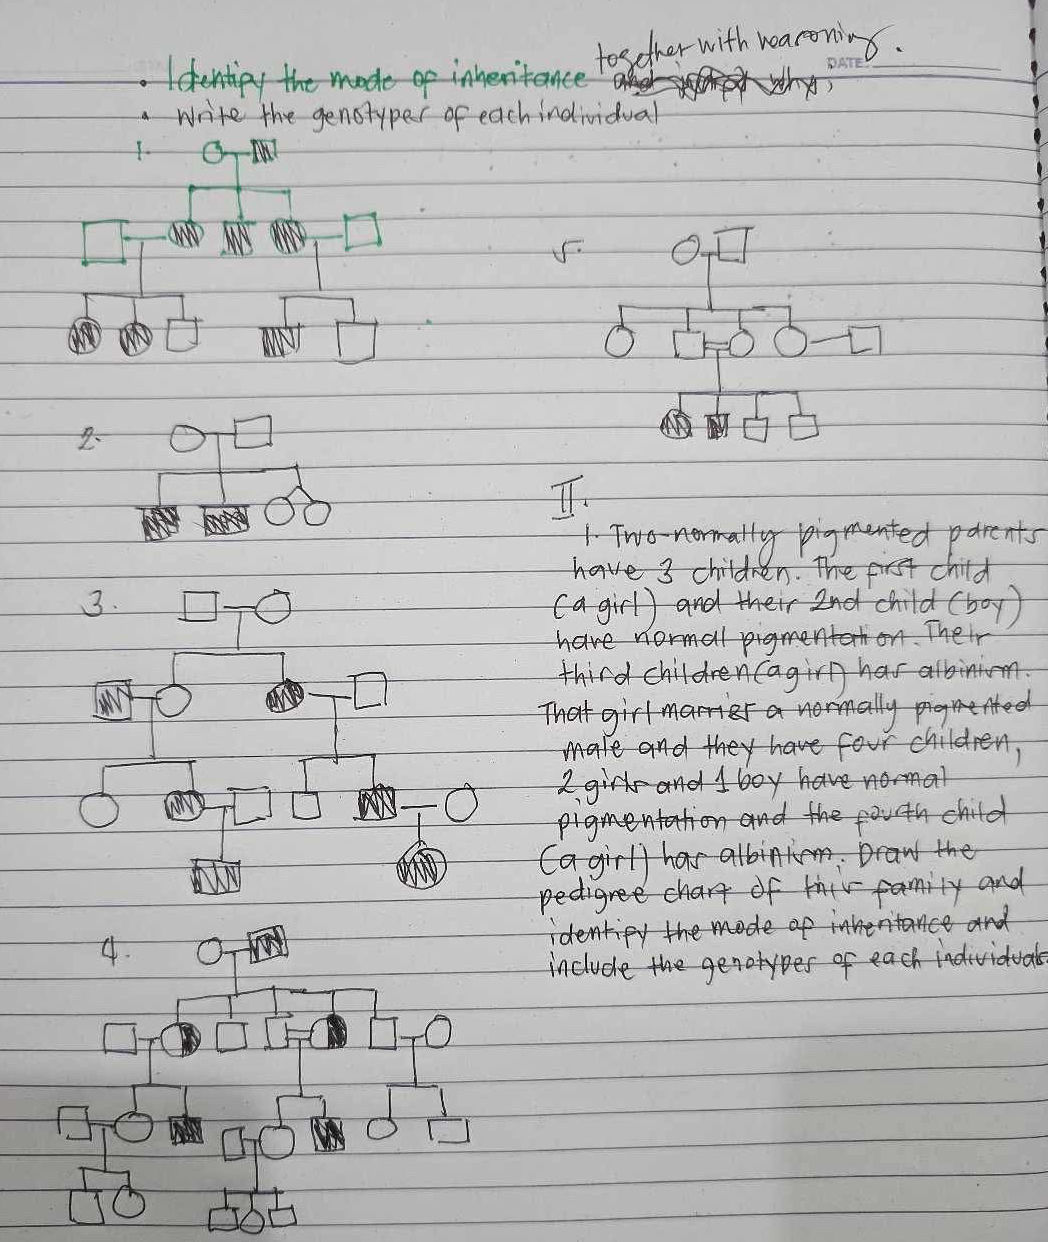 together with reasoning.
DATE:
• Identify the mode of inheritance
• Write the genotypes of each individual
1.
5.
2.
3.
4.
II.
1. Two normally pigmented parents
have 3 children. The first child
(a girl) and their 2nd child (boy)
have normal pigmentation. Their
third children (a girl) has albinism.
That girl marries a normally pigmented
male and they have four children,
2 girls and 1 boy have normal
pigmentation and the fourth child
(a girl) has albinism. Draw the
pedigree chart of this family and
identify the mode of inheritance and
include the genotypes of each individuals.